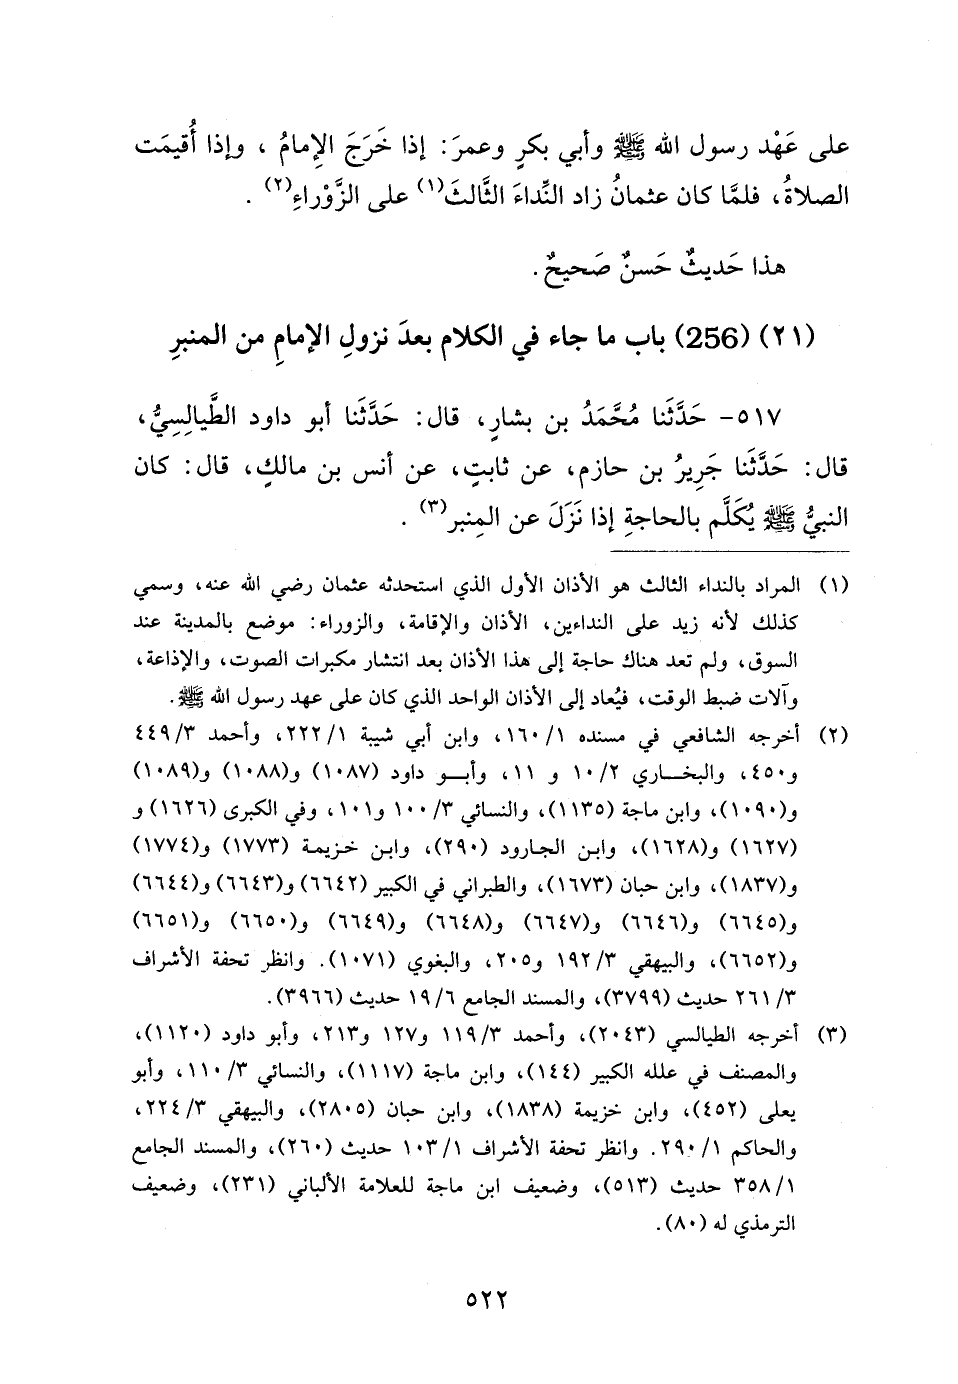 على عَهْد رسول الله ﷺ وأبي بكرٍ وعمرَ: إذا خَرَجَ الإِمامُ ، وإذا أُقيمَت
الصلاةُ، فلمَّا كان عثمانُ زاد النِّداءَ الثَّالثَ(١) على الزَّوْراءِ(٢) .
هذا حَديثٌ حَسنٌ صَحيحٌ.
(٢١) (256) باب ما جاء في الكلام بعدَ نزولِ الإمامِ من المنبرِ
٥١٧- حَدَّثَنا مُحَمَّدُ بن بشارٍ، قال: حَدَّثَنا أبو داود الطَّيالِسِيُّ،
قال: حَدَّثَنا جَرِيرُ بن حازم، عن ثابتٍ، عن أنس بن مالكٍ، قال: كان
النبيُّ ﷺ يُكَلَّم بالحاجةِ إذا نَزَلَ عن المِنبر(٣) .
(١) المراد بالنداء الثالث هو الأذان الأول الذي استحدثه عثمان رضي الله عنه، وسمي
كذلك لأنه زيد على النداءين، الأذان والإقامة، والزوراء: موضع بالمدينة عند
السوق، ولم تعد هناك حاجة إلى هذا الأذان بعد انتشار مكبرات الصوت، والإذاعة،
وآلات ضبط الوقت، فيُعاد إلى الأذان الواحد الذي كان على عهد رسول الله ﷺ.
(٢) أخرجه الشافعي في مسنده ١/ ١٦٠، وابن أبي شيبة ١/ ٢٢٢، وأحمد ٣/ ٤٤٩
و٤٥٠، والبخاري ٢/ ١٠ و ١١، وأبو داود (١٠٨٧) و(١٠٨٨) و(١٠٨٩)
و(١٠٩٠)، وابن ماجة (١١٣٥)، والنسائي ٣/ ١٠٠ و١٠١، وفي الكبرى (١٦٢٦) و
(١٦٢٧) و(١٦٢٨)، وابن الجارود (٢٩٠)، وابن خزيمة (١٧٧٣) و(١٧٧٤)
و(١٨٣٧)، وابن حبان (١٦٧٣)، والطبراني في الكبير (٦٦٤٢) و(٦٦٤٣) و(٦٦٤٤)
و(٦٦٤٥) و(٦٦٤٦) و(٦٦٤٧) و(٦٦٤٨) و(٦٦٤٩) و(٦٦٥٠) و(٦٦٥١)
و(٦٦٥٢)، والبيهقي ٣/ ١٩٢ و٢٠٥، والبغوي (١٠٧١). وانظر تحفة الأشراف
٣/ ٢٦١ حديث (٣٧٩٩)، والمسند الجامع ٦/ ١٩ حديث (٣٩٦٦).
(٣) أخرجه الطيالسي (٢٠٤٣)، وأحمد ٣/ ١١٩ و١٢٧ و٢١٣، وأبو داود (١١٢٠)،
والمصنف في علله الكبير (١٤٤)، وابن ماجة (١١١٧)، والنسائي ٣/ ١١٠، وأبو
يعلى (٤٥٢)، وابن خزيمة (١٨٣٨)، وابن حبان (٢٨٠٥)، والبيهقي ٣/ ٢٢٤،
والحاكم ١/ ٢٩٠. وانظر تحفة الأشراف ١/ ١٠٣ حديث (٢٦٠)، والمسند الجامع
١/ ٣٥٨ حديث (٥١٣)، وضعيف ابن ماجة للعلامة الألباني (٢٣١)، وضعيف
الترمذي له (٨٠).
٥٢٢